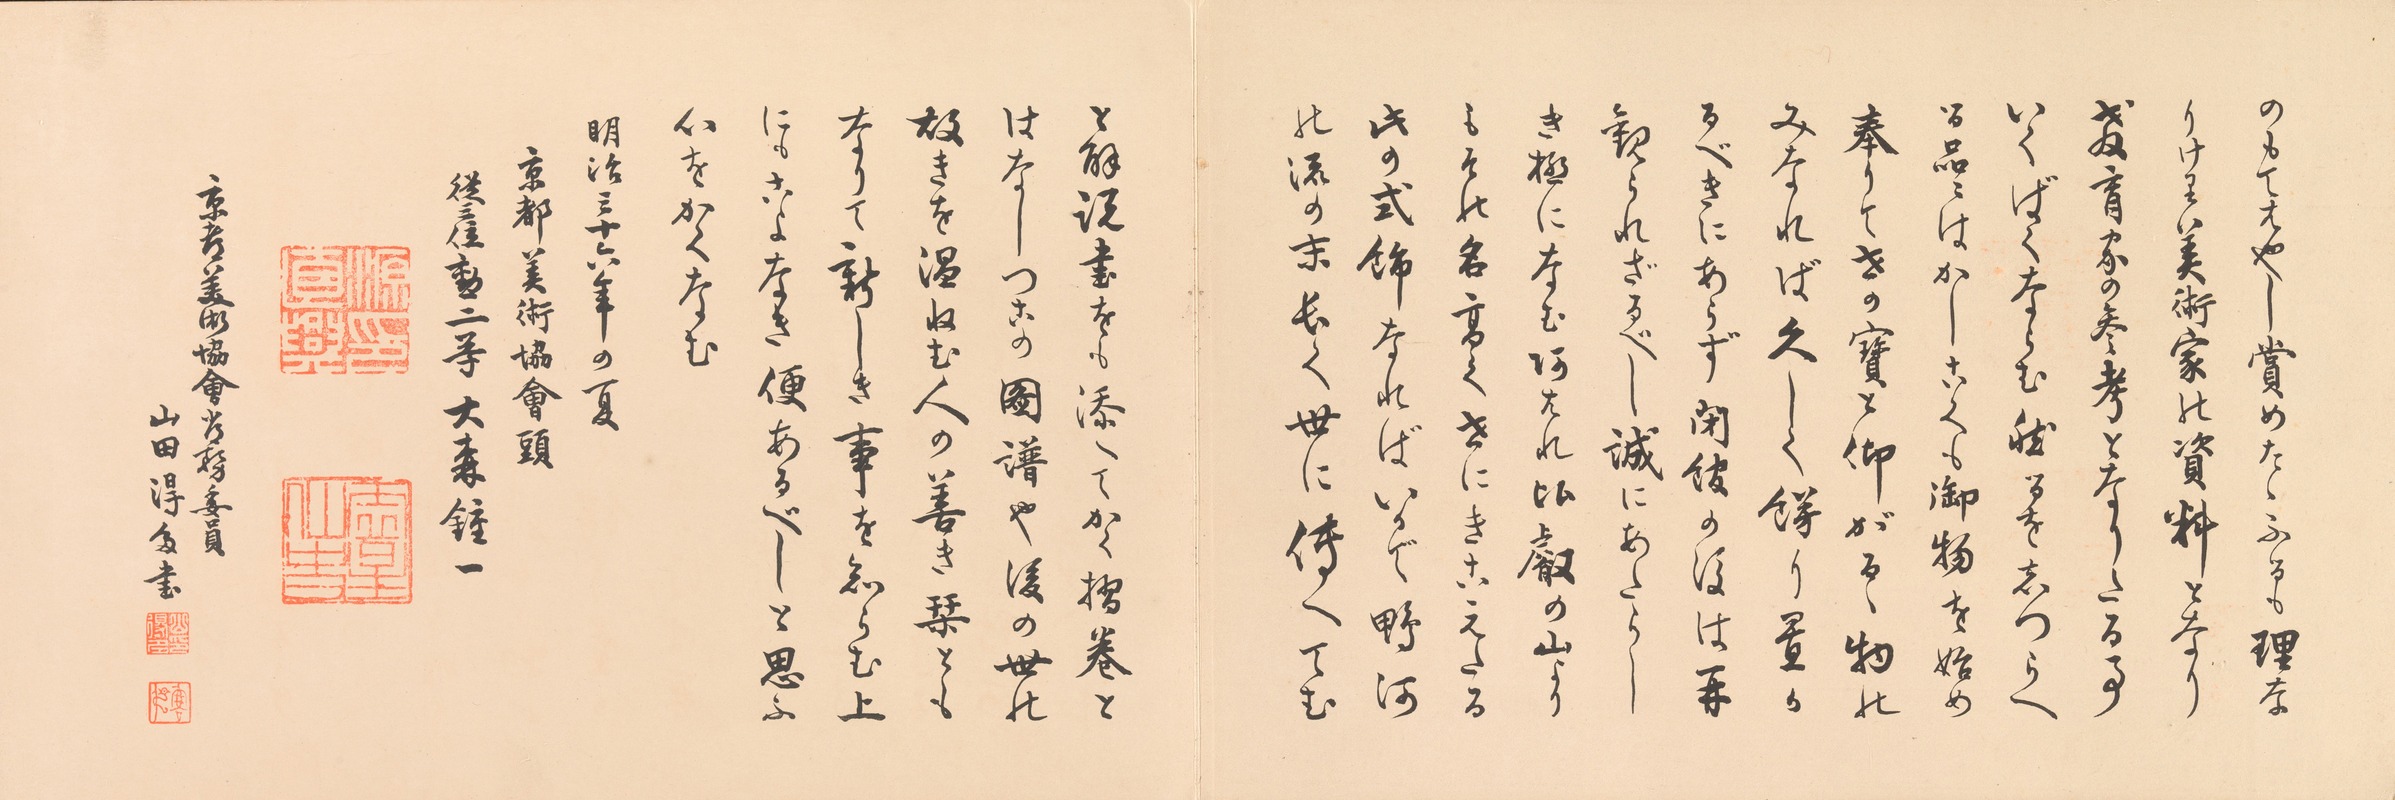 のもてはやし賞めたゝふるも理な
りけり美術家の資料となり
教育家の参考となりたる事
いくばくならむ然るを志つらへ
る品々はかしこくも御物を始め
奉りて世の寶と仰がるゝ物の
みなれば久しく餝り置か
るべきにあらず閉館の後は再
観られざるべし誠にあたらし
き極になむ
もその名高く世にきこえたる
此の式飾なればいかで鴨河
の流の末長く世に傳へてむ
と解説書をも添へてかく摺巻と
はなしつこの圖譜や後の世の
故きを温ねむ人の善き栞とも
なりて新しき事を知らむ上
にもこよなき便あるべしと思ふ
心をかくなむ
明治三十六年の夏
京都美術協會頭
従三位勲二等 大森鍾一
京都美術協會常務委員
山田得多書